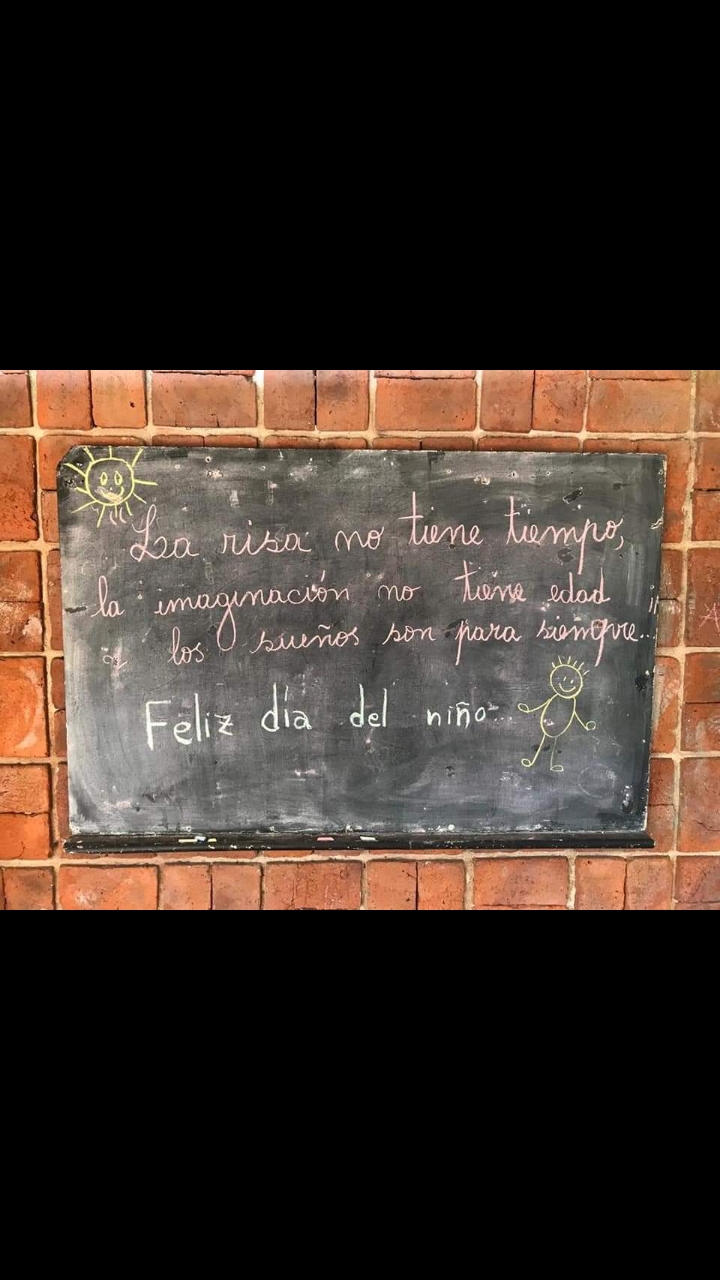 La risa no tiene tiempo,
la imaginación no tiene edad
y los sueños son para siempre...
Feliz día del niño...